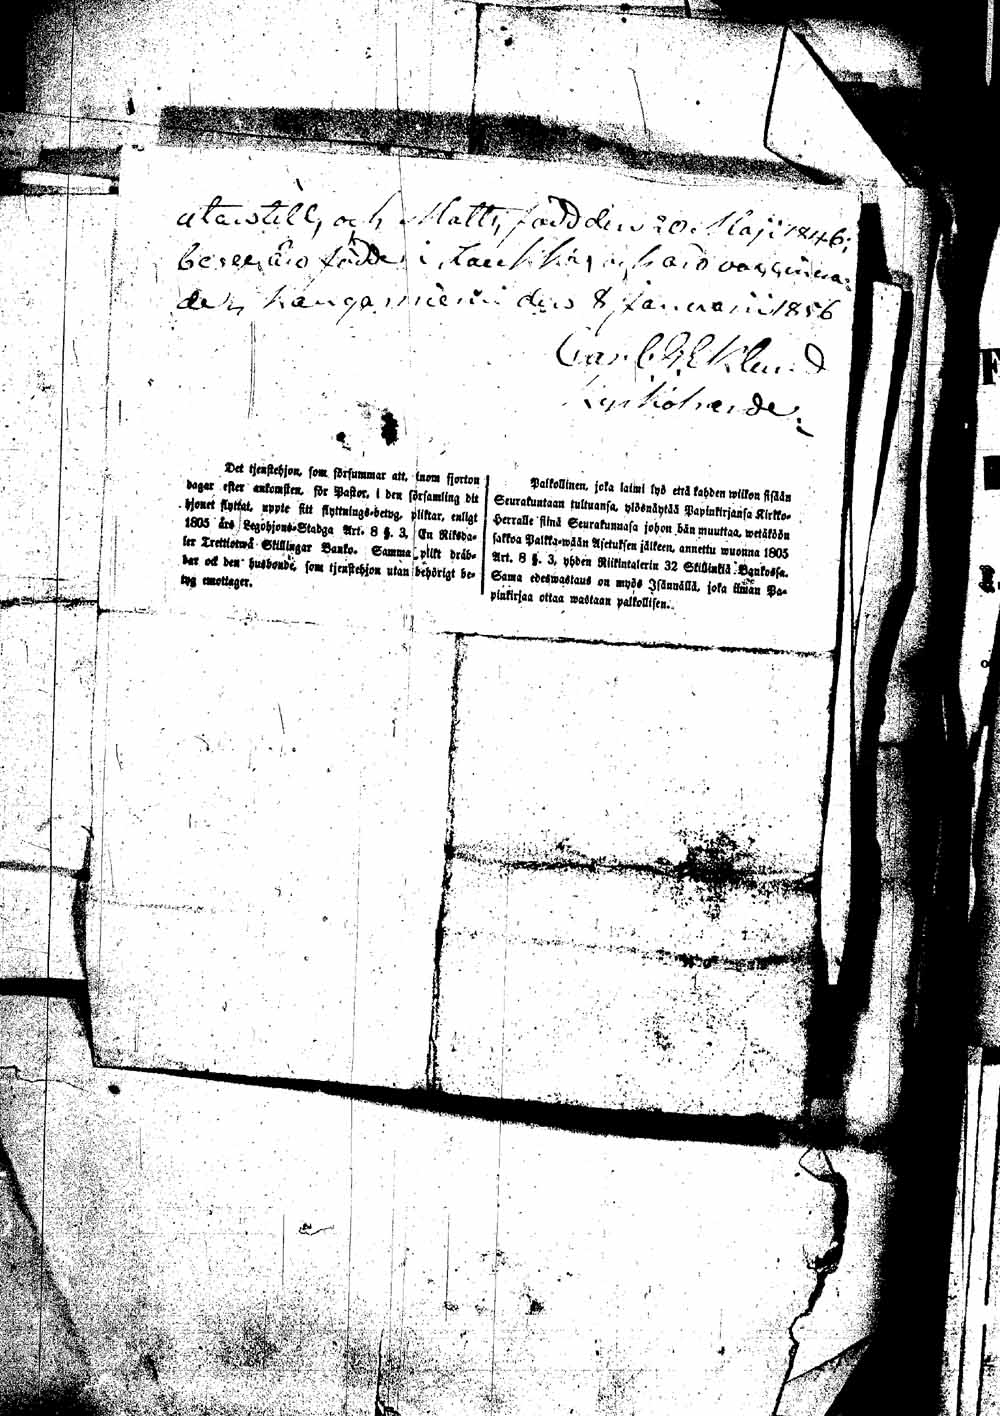 och Matts, född den 20 Maji 1846;
födde i och
den Kangasniemi den 8 Januarii 1856
Carl G Eklund
Kyrkoherde.
Det tjenstehjon, som försummar att, inom fjorton
dagar efter ankomsten, för Pastor, i den församling dit
hjonet flyttat, uppte sitt flyttnings-betyg, pliktar, enligt
1805 års Legohjons-Stadga Art. 8 §. 3, En Riksda-
ler Trettiotwå Skillingar Banko. Samma plikt dräb-
bar ock den husbonde, som tjenstehjon utan behörigt be-
tyg emottager.
Palkollinen, joka laimi lyö että kahden wiikon sisään
Seurakuntaan tultuansa, ylösnäyttää Papinkirjansa Kirkko-
Herralle siinä Seurakunnasa johon hän muuttaa, wetäköön
sakkoa Palkka-wään Asetuksen jälkeen, annettu wuonna 1805
Art. 8 §. 3, yhden Riikintalerin 32 Skillinkiä Bankossa.
Sama edeswastaus on myös Isännällä, joka ilman Pa-
pinkirjaa ottaa wastaan palkollisen.